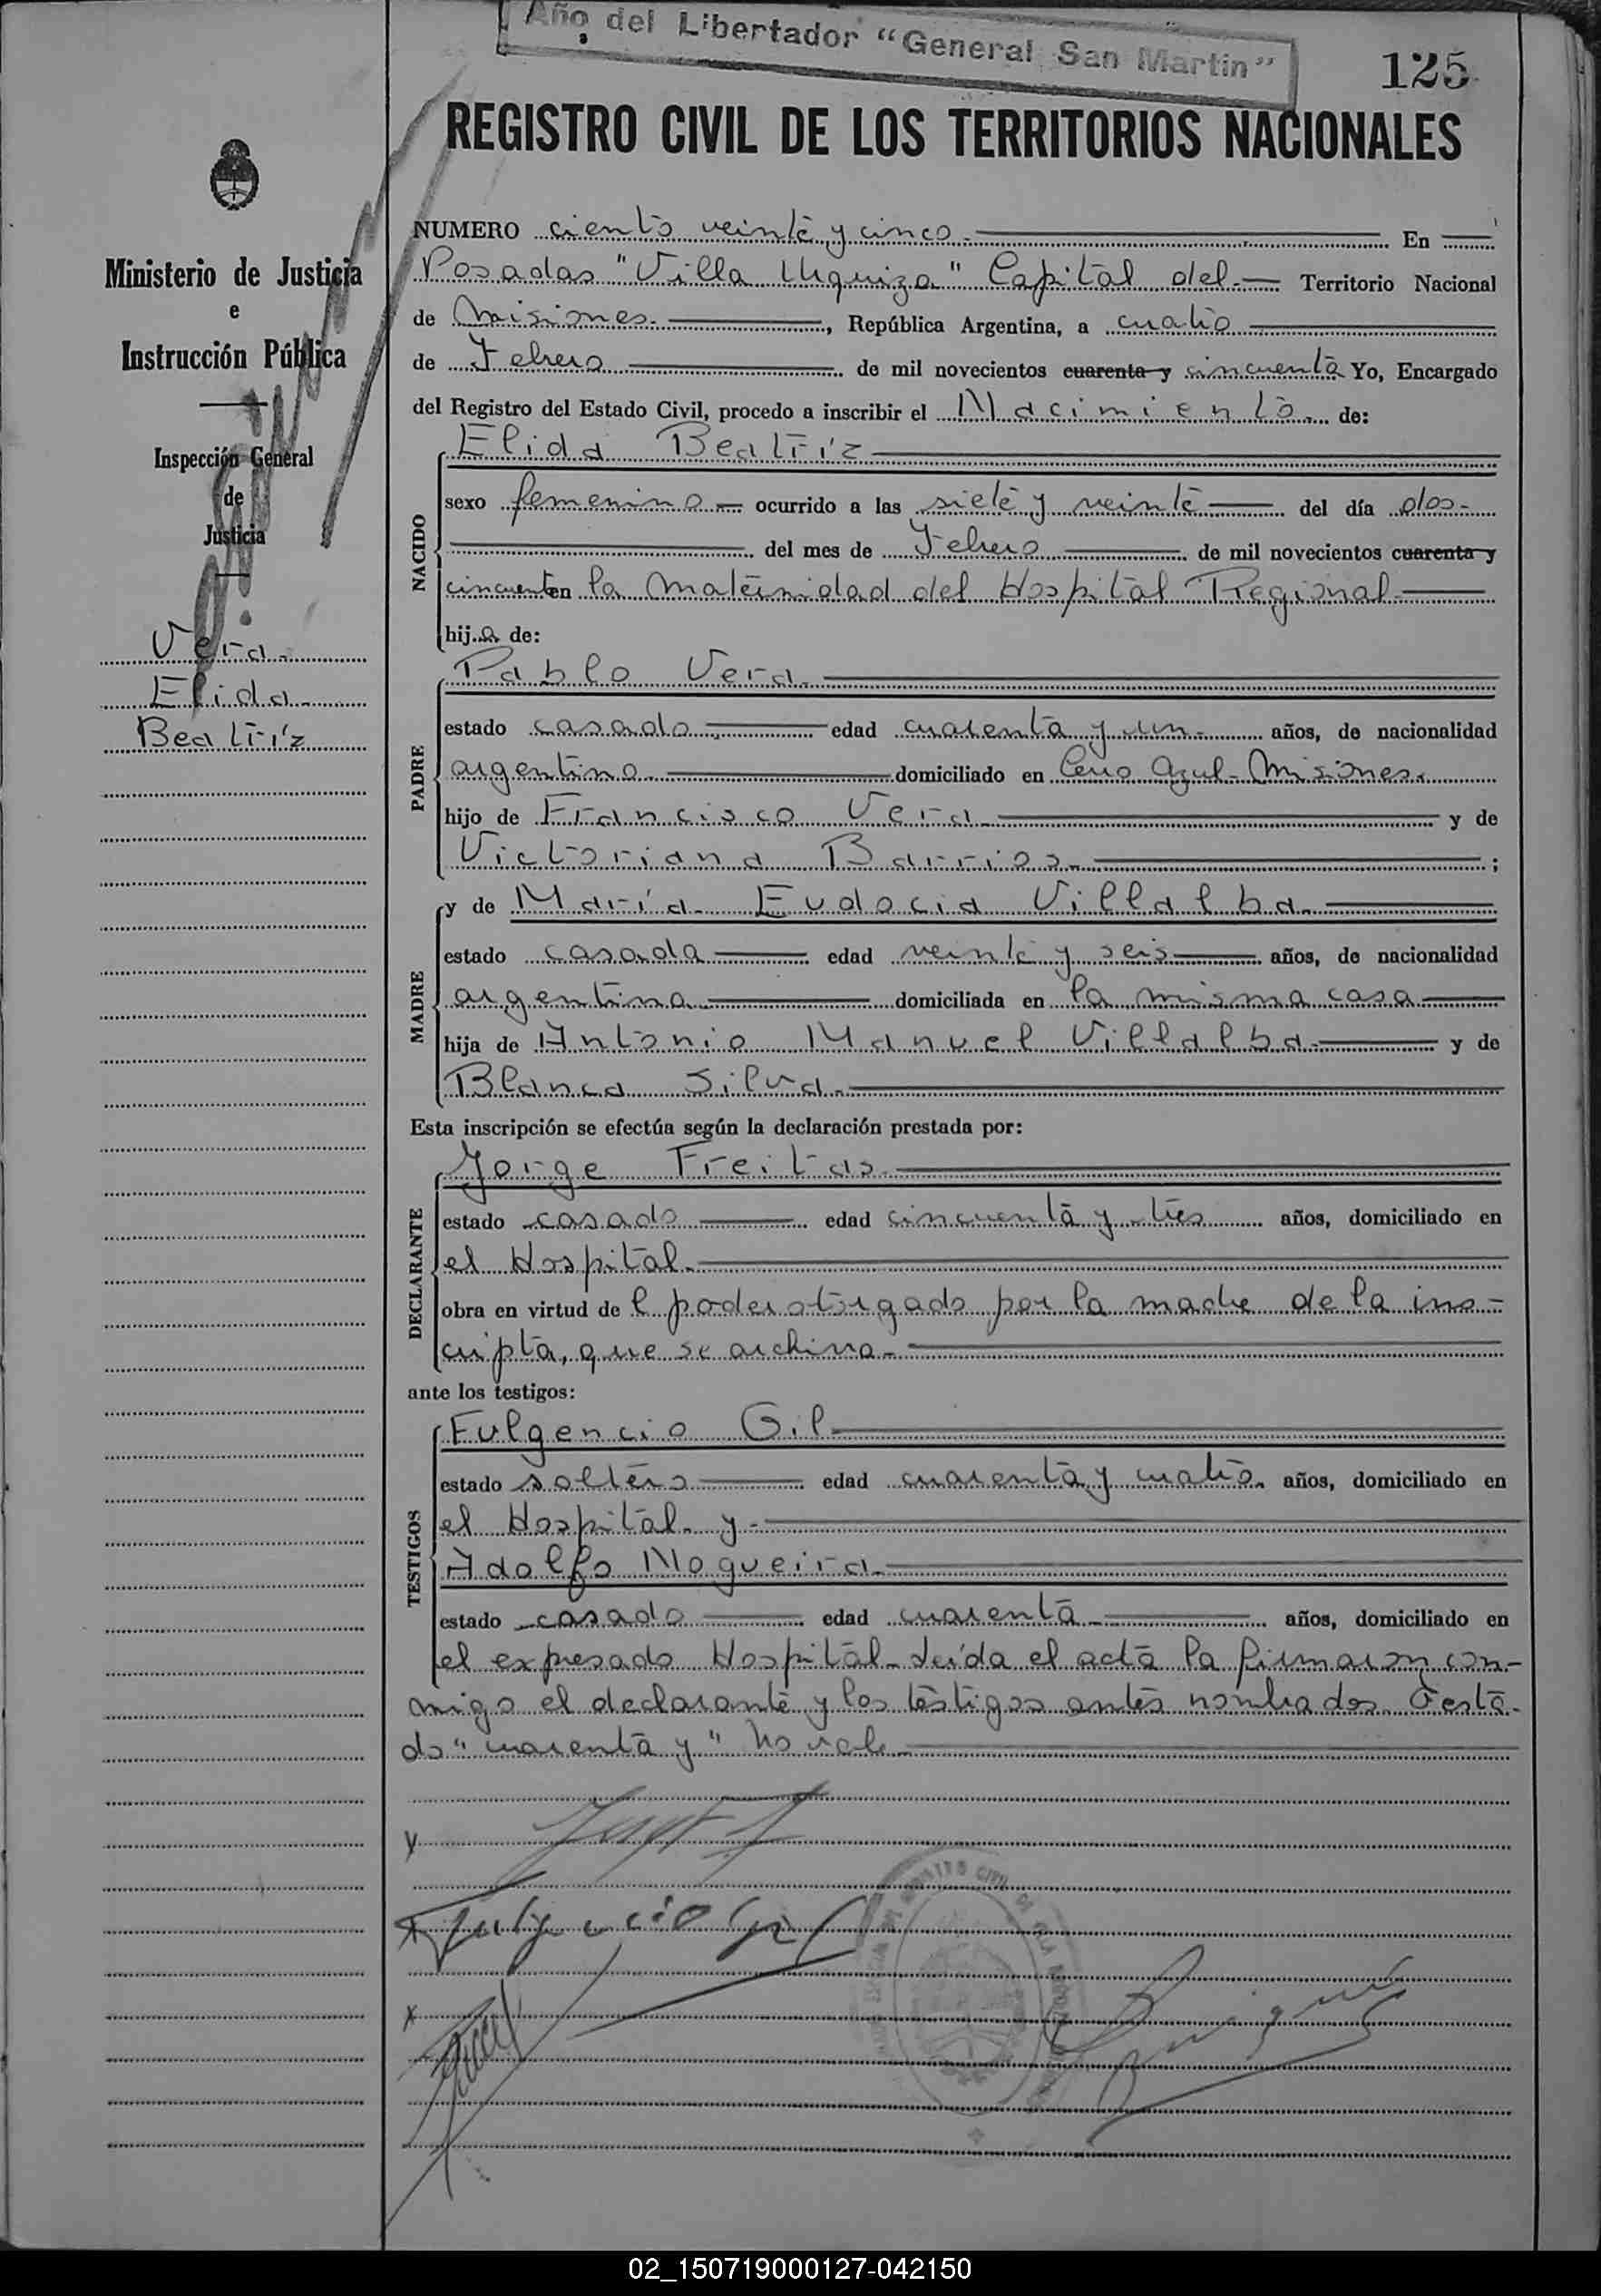 Año del Libertador "General San Martin"
125
REGISTRO CIVIL DE LOS TERRITORIOS NACIONALES
Ministerio de Justicia
e
Instrucción Pública
Inspección General
de
Justicia
Vera
Elida
Beatríz
NUMERO ciento veinte y cinco. En
Posadas "Villa Urquiza" Capital del Territorio Nacional
de Misiones, República Argentina, a cuatro
de Febrero de mil novecientos cuarenta y cincuenta Yo, Encargado
del Registro del Estado Civil, procedo a inscribir el Nacimiento de:
NACIDO
Elida Beatríz
sexo femenino ocurrido a las siete y veinte del día dos
del mes de Febrero de mil novecientos cuarenta y
cincuenta en la Maternidad del Hospital Regional
hija de:
PADRE
Pablo Vera
estado casado edad cuarenta y un años, de nacionalidad
argentino domiciliado en Cerro Azul - Misiones.
hijo de Francisco Vera y de
Victoriana Barrios;
MADRE
y de María Eudocia Villalba
estado casada edad veinte y seis años, de nacionalidad
argentina domiciliada en la misma casa
hija de Antonio Manuel Villalba y de
Blanca Silva
Esta inscripción se efectúa según la declaración prestada por:
DECLARANTE
Jorge Freitas
estado casado edad cincuenta y tres años, domiciliado en
el Hospital
obra en virtud de l poder otorgado por la madre de la ins-
cripta, que se archiva
ante los testigos:
TESTIGOS
Fulgencio Gil
estado soltero edad cuarenta y cuatro años, domiciliado en
el Hospital y
Adolfo Nogueira
estado casado edad cuarenta años, domiciliado en
el expresado Hospital - Leída el acta la firmaron con-
migo el declarante y los testigos antes nombrados. Testa-
do "cuarenta y" No vale
Fulgencio Gil
02_150719000127-042150